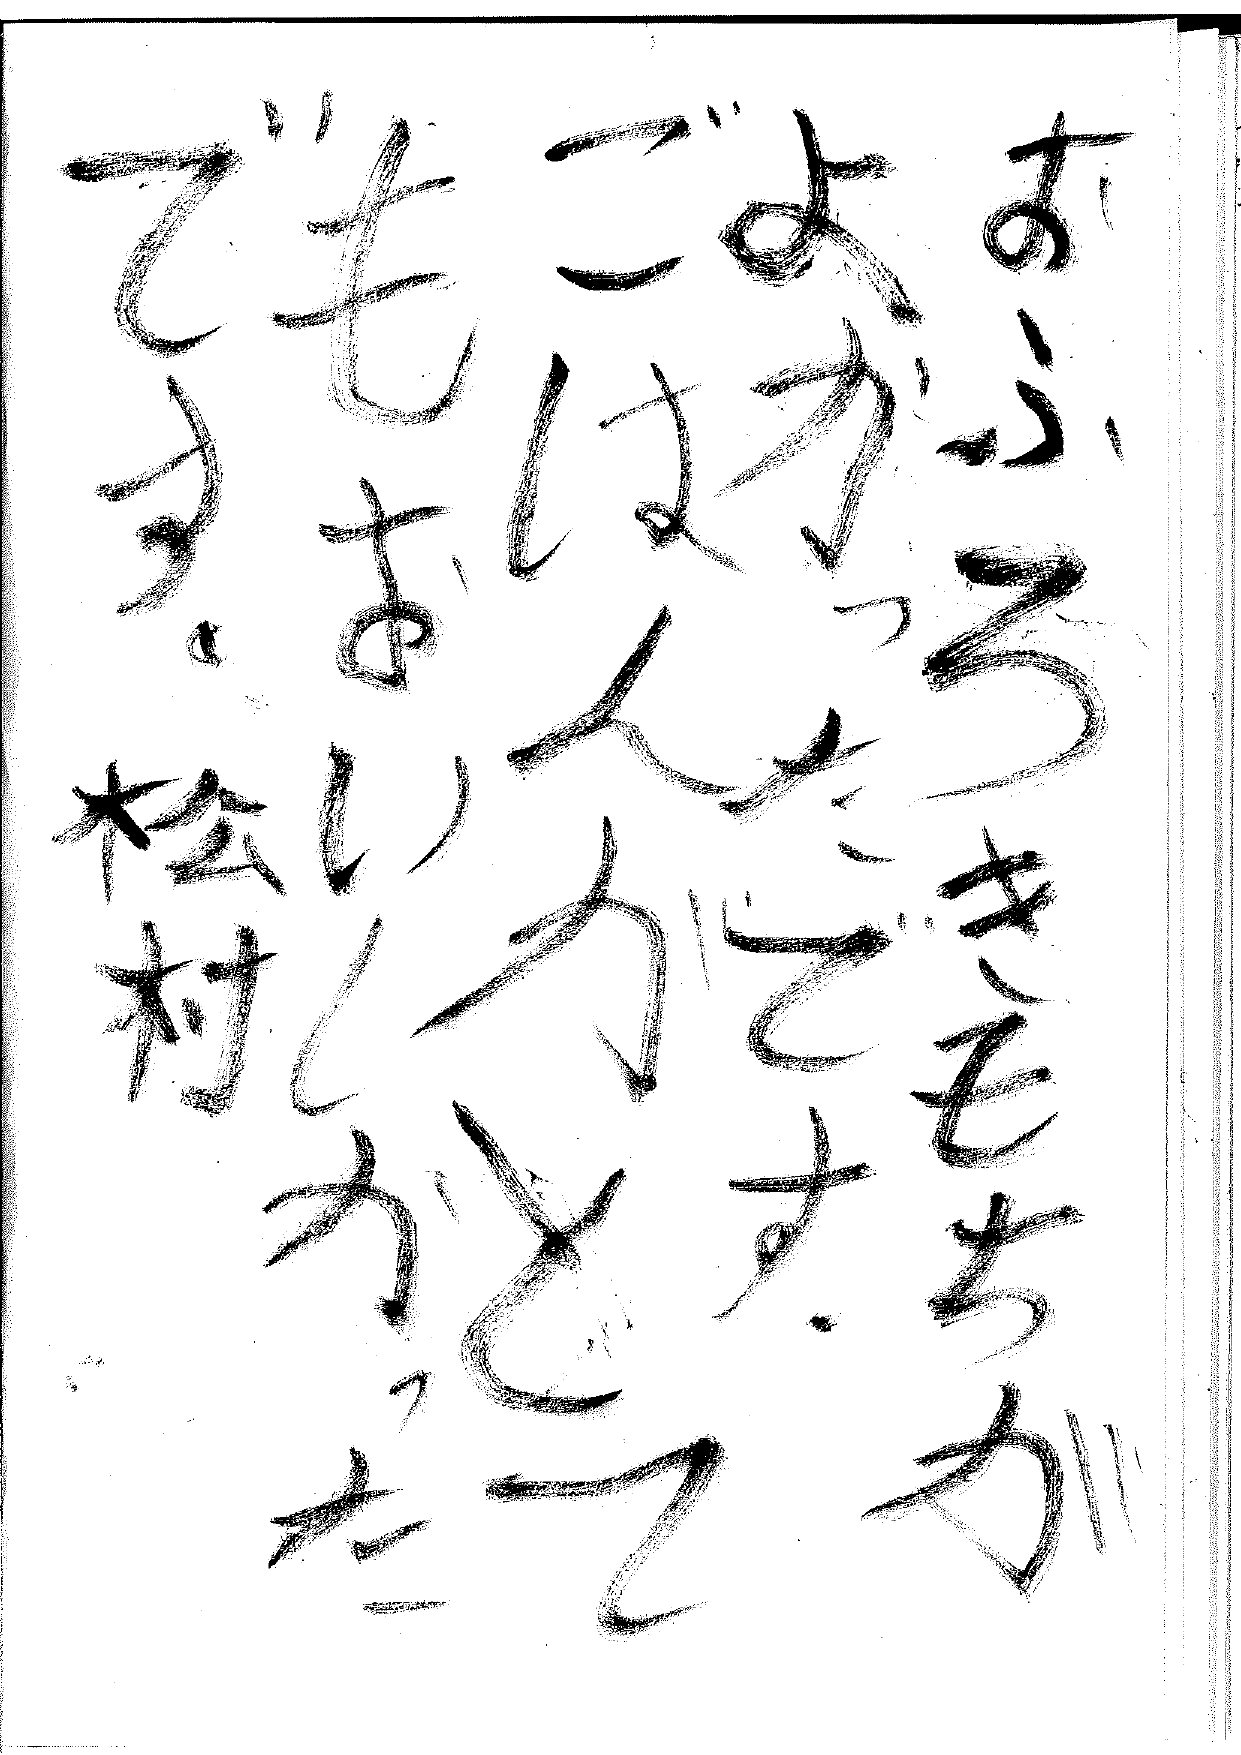 おふろきもちが
よかったです.
ごはんがとて
もおいしかった
です。松村